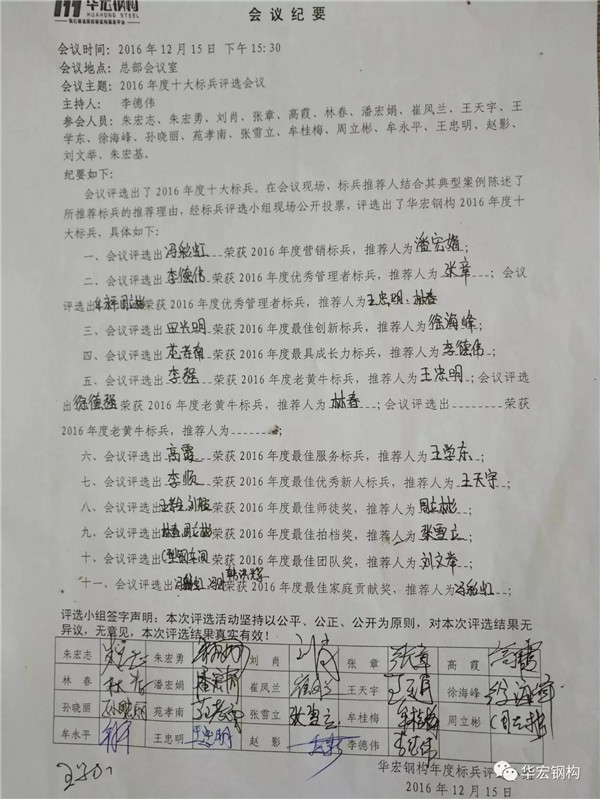 华宏钢构
HUAHONG STEEL
会议纪要
会议时间：2016年12月15日 下午15:30
会议地点：总部会议室
会议主题：2016年度十大标兵评选会议
主持人：李德伟
参会人员：朱宏志、朱宏勇、刘肖、张章、高霞、林春、潘宏娟、崔凤兰、王天宇、王
学东、徐海峰、孙晓丽、苑孝南、张雪立、牟桂梅、周立彬、牟永平、王忠明、赵影、
刘文举、朱宏基。
纪要如下：
会议评选出了2016年度十大标兵。在会议现场，标兵推荐人结合其典型案例陈述了
所推荐标兵的推荐理由，经标兵评选小组现场公开投票，评选出了华宏钢构2016年度十
大标兵，具体如下：
一、会议评选出冯彩虹荣获2016年度营销标兵，推荐人为潘宏娟；
二、会议评选出李德伟荣获2016年度优秀管理者标兵，推荐人为张章；会议
评选出荣获2016年度优秀管理者标兵，推荐人为王忠明、林春
三、会议评选出田兴明荣获2016年度最佳创新标兵，推荐人为徐海峰；
四、会议评选出苑孝南荣获2016年度最具成长力标兵，推荐人为李德伟；
五、会议评选出李强荣获2016年度老黄牛标兵，推荐人为王忠明；会议评选
出徐德强荣获2016年度老黄牛标兵，推荐人为林春；会议评选出--------荣获
2016年度老黄牛标兵，推荐人为-------；
六、会议评选出高霞荣获2016年度最佳服务标兵，推荐人为王学东；
七、会议评选出李顺荣获2016年度最佳新人标兵，推荐人为王天宇；
八、会议评选出荣获2016年度最佳师徒奖，推荐人为周立彬；
九、会议评选出林春 周立彬荣获2016年度最佳拍档奖，推荐人为张雪立；
十、会议评选出型钢车间荣获2016年度最佳团队奖，推荐人为刘文举；
十一、会议评选出冯彩虹荣获2016年度最佳家庭贡献奖，推荐人为冯彩虹；
评选小组签字声明：本次评选活动坚持以公平、公正、公开为原则，对本次评选结果无
异议，无意见，本次评选结果真实有效！
朱宏志 朱宏勇 刘肖 刘肖 张章 张章 高霞 高霞
林春 林春 潘宏娟 潘宏娟 崔凤兰 崔凤兰 王天宇 王天宇 徐海峰 徐海峰
孙晓丽 孙晓丽 苑孝南 苑孝南 张雪立 张雪立 牟桂梅 牟桂梅 周立彬 周立彬
牟永平 王忠明 王忠明 赵影 赵影 李德伟 李德伟
华宏钢构年度标兵评选
2016年12月15日
华宏钢构